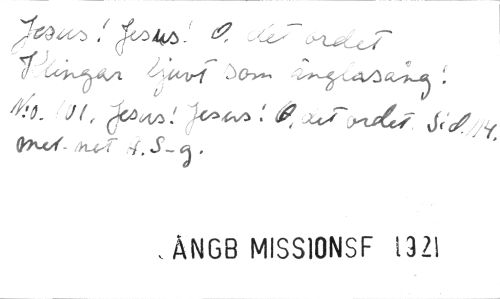 Jesus! Jesus! O, det ordet
Klingar ljuvt som änglasång!
N:o. 101. Jesus! Jesus! O, det ordet. Sid. 114.
met. not A. S-g.
ÅNGB MISSIONSF 1921